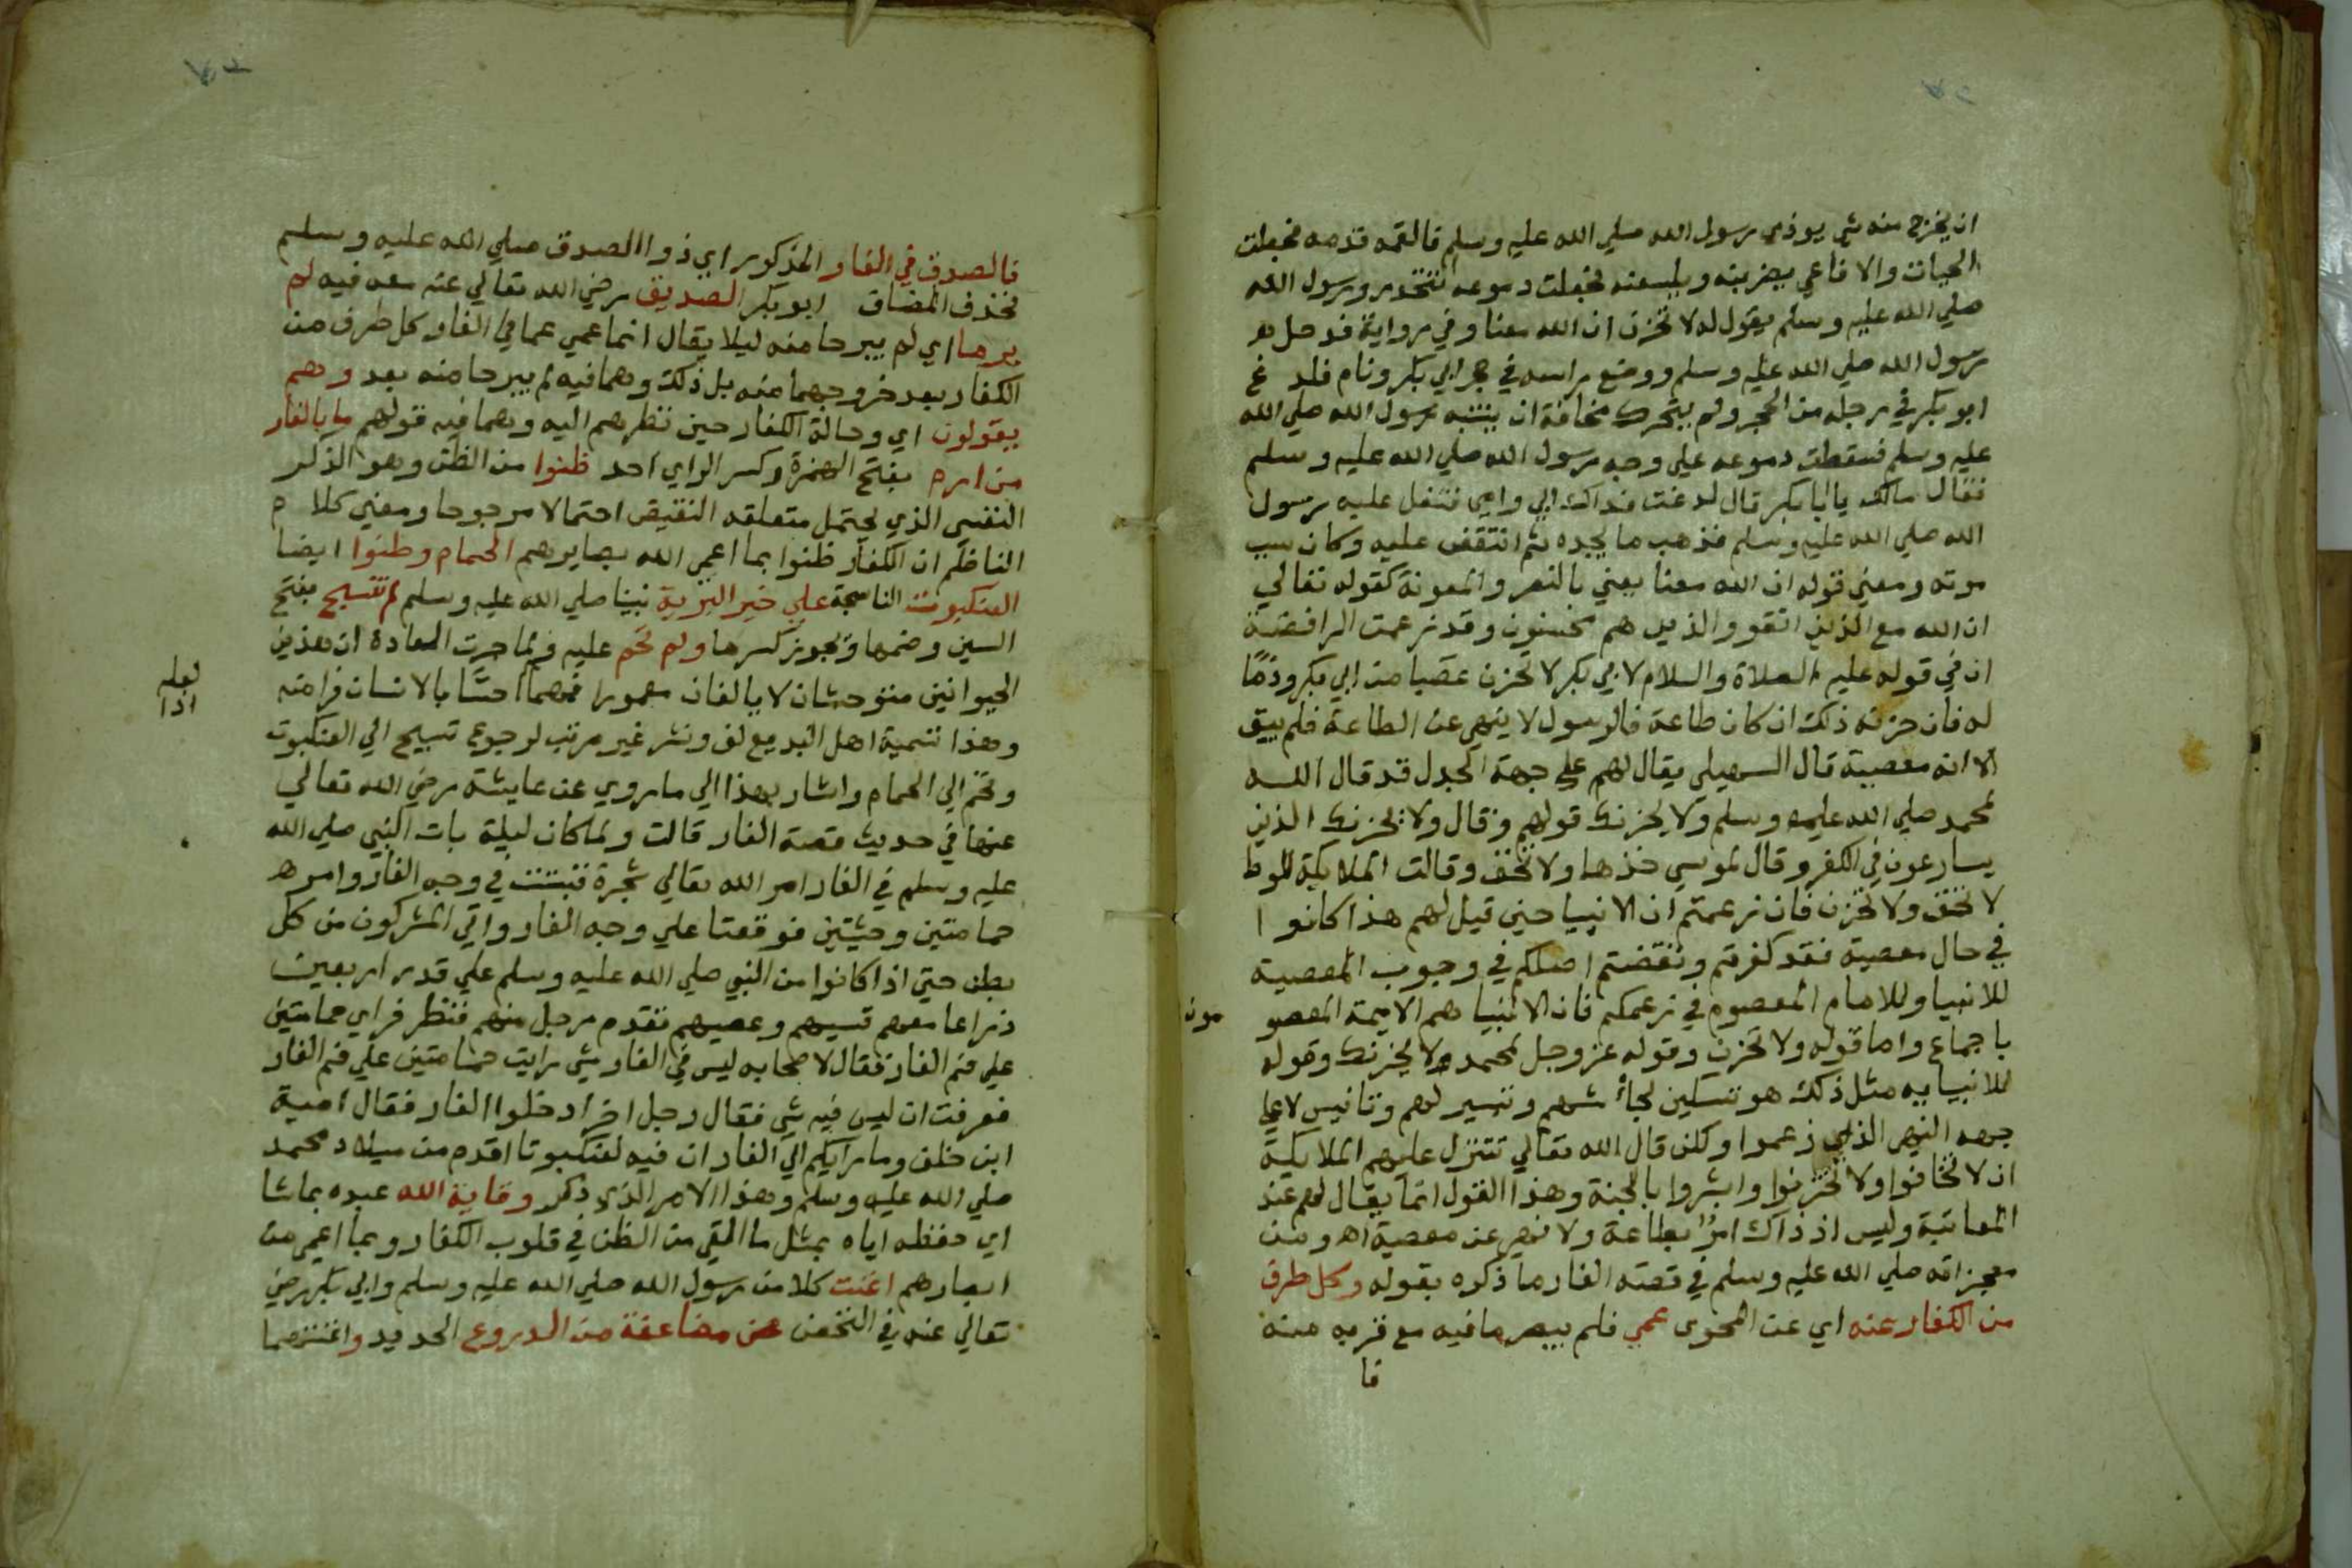 ان يخرج منه شي يوذي رسول الله صلي الله عليه وسلم فالقمه قدمه فجعلت
الحيات والافاعي يضربنه ويلسعنه فجعلت دموعه تتحدر ورسول الله
صلي الله عليه وسلم يقول له لا تحزن ان الله معنا وفي رواية فدخل هو
رسول الله صلي الله عليه وسلم ووضع راسه في حجر ابي بكر ونام فلدغ
ابو بكر في رجله من الحجر ولم يتحرك مخافة ان ينتبه رسول الله صلي الله
عليه وسلم فسقطت دموعه علي وجه رسول الله صلي الله عليه وسلم
فقال مالك يا ابا بكر قال لدغت فداك ابي وامي فتفل عليه رسول
الله صلي الله عليه وسلم فذهب ما يجده ثم انتقض عليه وكان سبب
موته ومعني قوله ان الله معنا يعني بالنصر والمعونة كقوله تعالي
ان الله مع الذين اتقو والذين هم محسنون وقد زعمت الرافضة
ان في قوله عليه الصلاة والسلام لابي بكر لا تحزن غضبا من ابي بكر وذمًا
له فان حزنه ذلك ان كان طاعة فالرسول لا ينهي عن الطاعة فلم يبق
الا انه معصية قال السهيلي يقال لهم علي جهة الجدل قد قال الله
لمحمد صلي الله عليه وسلم ولا يحزنك قولهم وقال ولا يحزنك الذين
يسارعون في الكفر وقال لموسي خذها ولا تخف وقالت الملايكة للوط
لا تخف ولا تحزن فان زعمتم ان الانبيا حين قيل لهم هذا كانوا
في حال معصية فقد كفرتم ونقضتم اصلكم في وجوب المعصية
للانبيا وللامام المعصوم في زعمكم فان الانبيا هم الايمة المعصو
مون
باجماع واما قوله ولا تحزن وقوله عز وجل لمحمد ولا يحزنك وقوله
للانبيايه مثل ذلك هو تسكين لجأشهم وتبسير لهم وتانيس لا علي
جهه النهي الذي زعموا وكلن قال الله تعالي تتنزل عليهم الملايكة
ان لا تخافوا ولا تحزنوا وابشروا بالجنة وهذا القول انما يقال لهم عند
المعاتبة وليس اذ ذاك امرًا بطاعة ولا نهي عن معصية اه ومن
معجزاته صلي الله عليه وسلم في قصته الغار ما ذكره بقوله وكل طرف
من الكفار عنه اي عن المحوي عمي فلم يبصر ما فيه مع قربه منه
فا
فالصدق في الغار المذكور اي ذوا الصدق صلي الله عليه وسلم
فحذف المضاف ابو بكر الصديق رضي الله تعالي عنه معه فيه لم
يرما اي لم يبرحا منه ليلا يقال انما عمي عما في الغار كل طرف من
الكفار بعد خروجهما منه بل ذلك وهما فيه لم يبرحا منه بعد وهم
يقولون اي وحالة الكفار حين نظرهم اليه وهما فيه قولهم ما بالغار
من ارم بفتح الهمزة وكسر الراي احد ظنوا من الظن وهو الذكر
النفسي الذي يحتمل متعلقه النقيض احتمالا مرجوحا ومعني كلام
الناظم ان الكفار ظنوا بما اعمي الله بصايرهم الحمام وظنوا ايضا
العنكبوت الناسجة علي خير البرية نبينا صلي الله عليه وسلم لم تنسج بفتح
السين وضمها ويجوز كسرها ولم تحم عليه ولما جرت العادة ان هذين
الحيوانين متوحشان لا يالفان معمورا فمهما احسّا بالانسان فرا منه
لعله
اذا
وهذا تسمية اهل البديع لف ونشر غير مرتب لرجوع تنسيج الي العنكبوت
وتحم الي الحمام واشار بهذا الي ما روي عن عايشة رضي الله تعالي
عنها في حديث قصة الغار قالت ولما كان ليلة بات النبي صلي الله
عليه وسلم في الغار امر الله تعالي شجرة فنبتت في وجه الغار وامره
حمامتين وحشيتين فوقعتا علي وجه الغار واتي المشركون من كل
بطن حتي اذا كانوا من النبي صلي الله عليه وسلم علي قدر اربعين
ذراعا معهم قسيهم وعصيهم تقدم رجل منهم فنظر فراي حمامتين
علي فم الغار فقال لاصحابه ليس في الغار شي رايت حمامتين علي فم الغار
فعرفت ان ليس فيه شي فقال رجل اخر ادخلوا الغار فقال امية
ابن خلف وما رايكم الي الغار ان فيه لعنكبوتا اقدم من ميلاد محمد
صلي الله عليه وسلم وهذا الامر الذي ذكر وقاية الله عبده بما شا
اي حفظه اياه بمثل ما القي من الظن في قلوب الكفار وبما اعمي من
ابصارهم اغنت كلا من رسول الله صلي الله عليه وسلم وابي بكر رضي
تعالي عنه في التحصن عن مضاعفة من الدروع الحديد واغنتهما